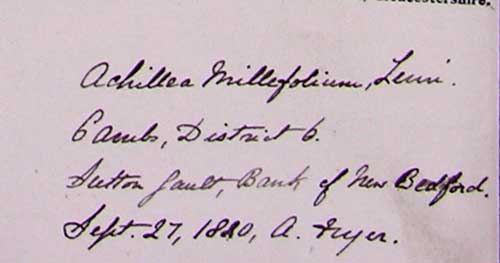 Gloucestershire.
Achillea Millefolium, Linn.
Cambs, District 6.
Sutton Gault, Bank of New Bedford.
Sept. 27, 1880, A. Fryer.